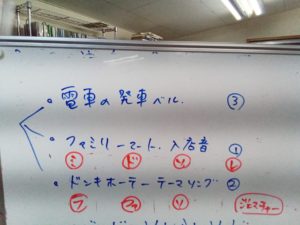 ・電車の発車ベル. ③
・ファミリーマート. 入店音 ①
ミ ド ソ レ
・ドンキホーテ テーマソング ②
ファ ソ